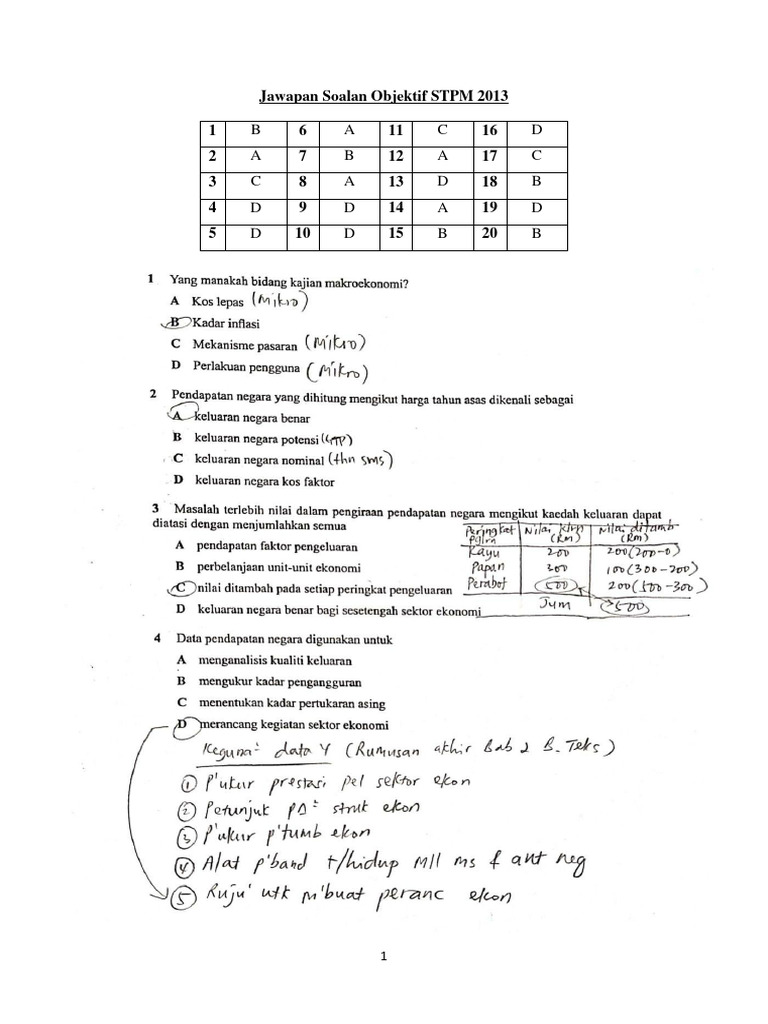 Jawapan Soalan Objektif STPM 2013
1 B 6 A 11 C 16 D
2 A 7 B 12 A 17 C
3 C 8 A 13 D 18 B
4 D 9 D 14 A 19 D
5 D 10 D 15 B 20 B
1 Yang manakah bidang kajian makroekonomi?
A Kos lepas (Mikro)
B Kadar inflasi
C Mekanisme pasaran (Mikro)
D Perlakuan pengguna (Mikro)
2 Pendapatan negara yang dihitung mengikut harga tahun asas dikenali sebagai
A keluaran negara benar
B keluaran negara potensi
C keluaran negara nominal (thn sms)
D keluaran negara kos faktor
3 Masalah terlebih nilai dalam pengiraan pendapatan negara mengikut kaedah keluaran dapat
diatasi dengan menjumlahkan semua
A pendapatan faktor pengeluaran
B perbelanjaan unit-unit ekonomi
C nilai ditambah pada setiap peringkat pengeluaran
D keluaran negara benar bagi sesetengah sektor ekonomi
Peringkat Nilai (RM) Nilai ditamb (RM)
Kayu 200 200(200-0)
Papan 300 100(300-200)
Perabot 500 200(500-300)
Jum 500
4 Data pendapatan negara digunakan untuk
A menganalisis kualiti keluaran
B mengukur kadar pengangguran
C menentukan kadar pertukaran asing
D merancang kegiatan sektor ekonomi
Keguna² data Y (Rumusan akhir Bab 2 B. Teks)
1 P'ukur prestasi pel sektor ekon
2 Petunjuk PΔ² strut ekon
3 P'ukur p'tumb ekon
4 Alat p'band t/hidup Mll ms & ant neg
5 Ruju' utk m'buat peranc ekon
1